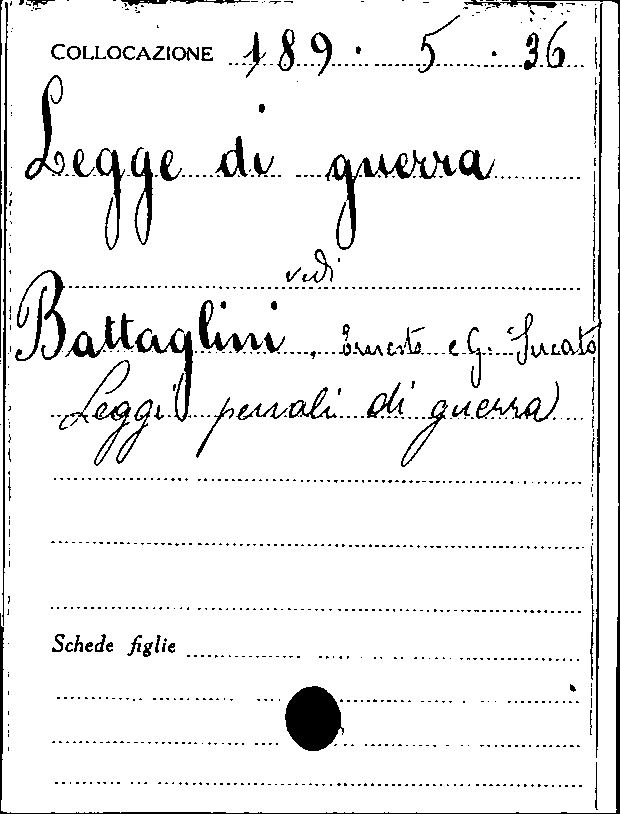 COLLOCAZIONE 189. 5. 36
Legge di guerra
vedi
Battaglini, Ernesto e G. Sucato
Leggi penali di guerra
Schede figlie